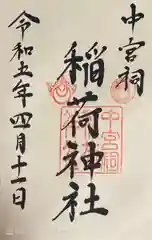 中宮祠
稲荷神社
令和五年四月十一日